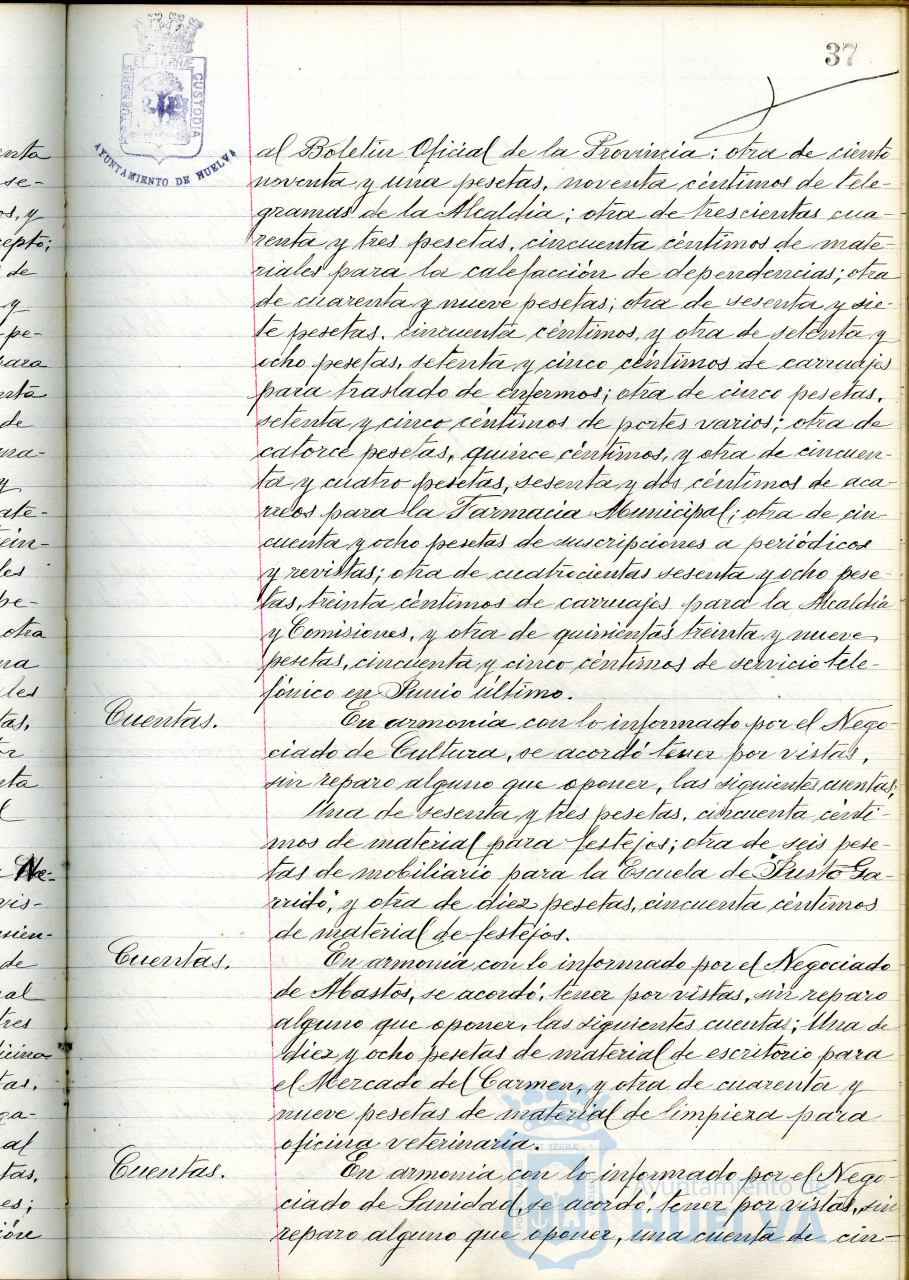 37
PORTUS MARIS
ET TERRÆ
CUSTODIA
AYUNTAMIENTO DE HUELVA
al Boletín Oficial de la Provincia; otra de ciento
noventa y una pesetas, noventa céntimos de tele-
gramas de la Alcaldia; otra de trescientas cua-
renta y tres pesetas, cincuenta céntimos de mate-
riales para la calefacción de dependencias; otra
de cuarenta y nueve pesetas; otra de sesenta y sie-
te pesetas, cincuenta céntimos, y otra de setenta y
ocho pesetas, setenta y cinco céntimos de carruajes
para traslado de enfermos; otra de cinco pesetas,
setenta y cinco céntimos de portes varios; otra de
catorce pesetas, quince céntimos, y otra de cincuen-
ta y cuatro pesetas, sesenta y dos céntimos de aca-
rreos para la Farmacia Municipal; otra de cin-
cuenta y ocho pesetas de suscripciones a periódicos
y revistas; otra de cuatrocientas sesenta y ocho pese-
tas, treinta céntimos de carruajes para la Alcaldia
y Comisiones, y otra de quinientas treinta y nueve
pesetas, cincuenta y cinco céntimos de servicio tele-
fónico en Junio último.
Cuentas. En armonía con lo informado por el Nego-
ciado de Cultura, se acordó tener por vistas,
sin reparo alguno que oponer, las siguientes cuentas;
Una de sesenta y tres pesetas, cincuenta cénti-
mos de material para festejos; otra de seis pese-
tas de mobiliario para la Escuela de "Justo Ga-
rrido", y otra de diez pesetas, cincuenta céntimos
de material de festejos.
Cuentas. En armonía con lo informado por el Negociado
de Abastos, se acordó, tener por vistas, sin reparo
alguno que oponer, las siguientes cuentas; Una de
diez y ocho pesetas de material de escritorio para
el Mercado del Carmen, y otra de cuarenta y
nueve pesetas de material de limpieza para
oficina veterinaria.
Cuentas. En armonía con lo informado por el Nego-
ciado de Sanidad, se acordó, tener por vistas, sin
reparo alguno que oponer, una cuenta de cin-
Ayuntamiento de
HUELVA